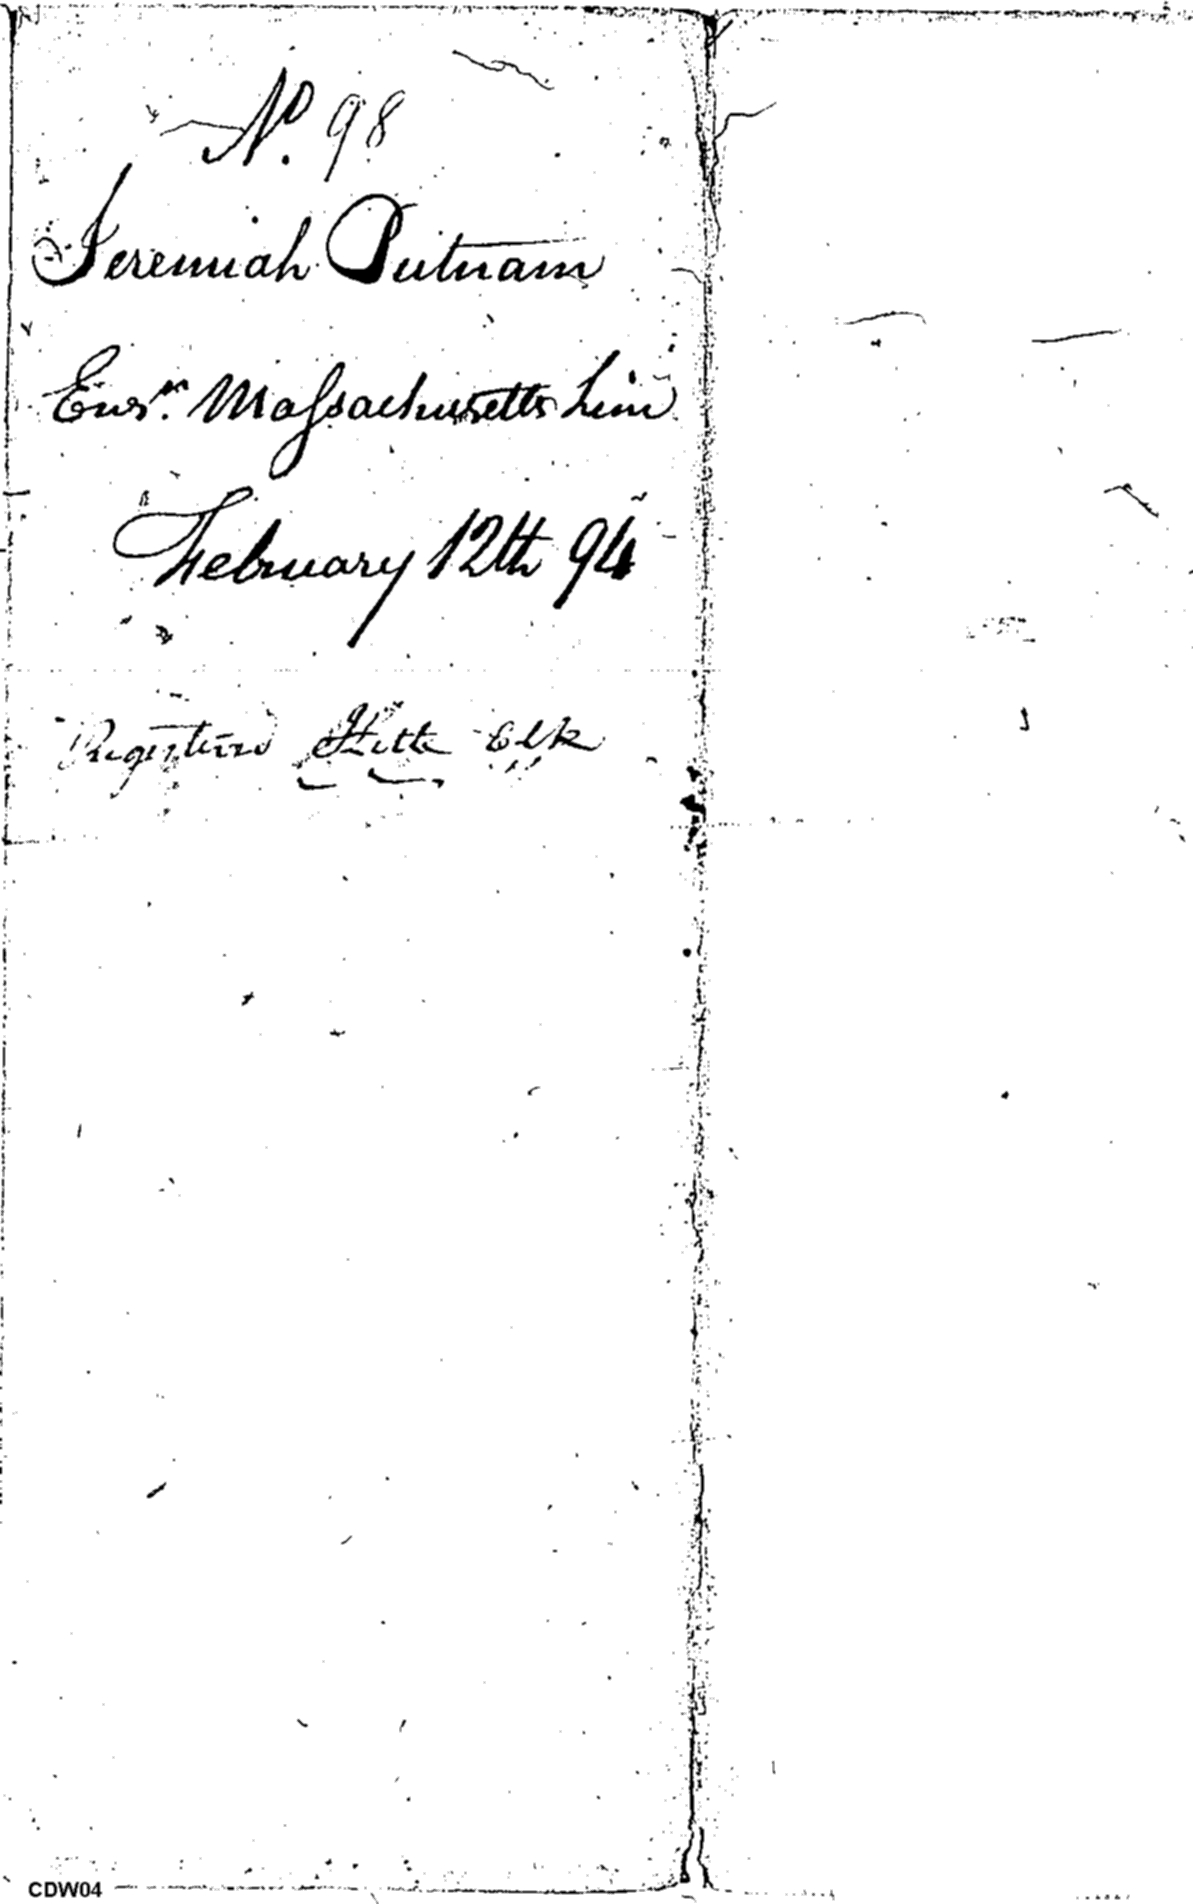 No. 98
Jeremiah Putnam
Ensn. Massachusetts Line
February 12th 94
Registered Clk
CDW04